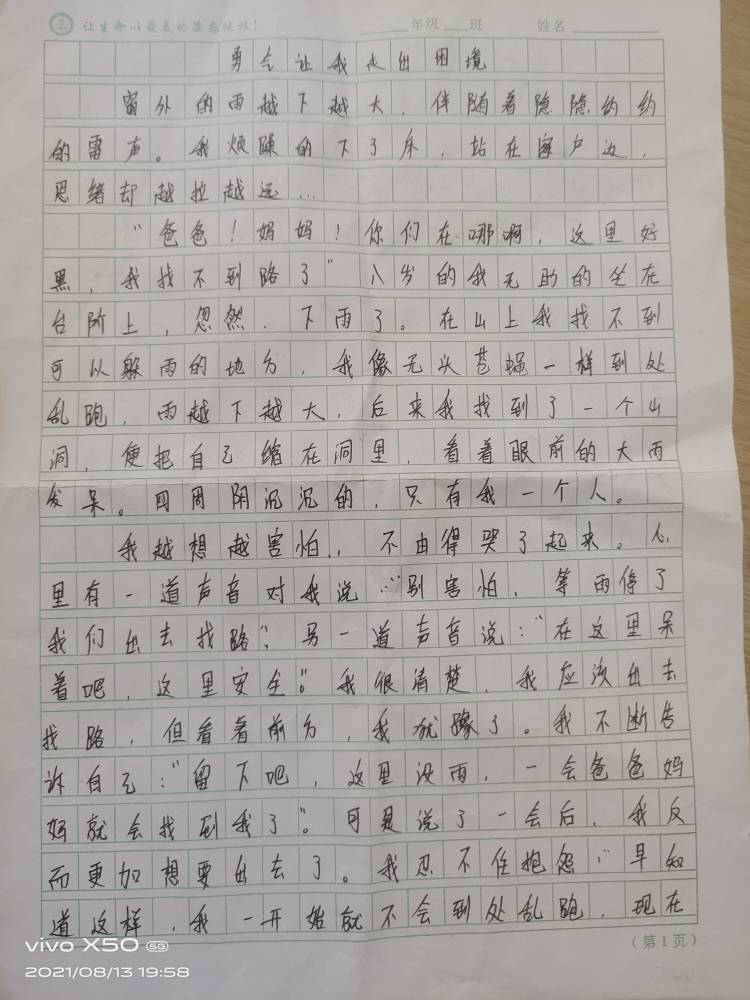 让生命以最美的姿态绽放！ ____年级 ___班 姓名________
勇气让我走出困境
窗外的雨越下越大，伴随着隐隐约约
的雷声。我烦躁的下了床，站在窗户边，
思绪却越拉越远…
“爸爸！妈妈！你们在哪啊，这里好
黑，我找不到路了”八岁的我无助的坐在
台阶上，忽然，下雨了。在山上我找不到
可以躲雨的地方，我像无头苍蝇一样到处
乱跑，雨越下越大，后来我找到了一个山
洞，便把自己缩在洞里，看着眼前的大雨
发呆。四周阴沉沉的，只有我一个人。
我越想越害怕，不由得哭了起来。心
里有一道声音对我说：“别害怕，等雨停了
我们出去找路”，另一道声音说：“在这里呆
着吧，这里安全”。我很清楚，我应该出去
找路，但看着前方，我犹豫了。我不断告
诉自己：“留下吧，这里没雨，一会爸爸妈
妈就会找到我了”。可是说了一会后，我反
而更加想要出去了。我忍不住抱怨：“早知
道这样，我一开始就不会到处乱跑，现在
（第1页）
vivo X50 5G
2021/08/13 19:58